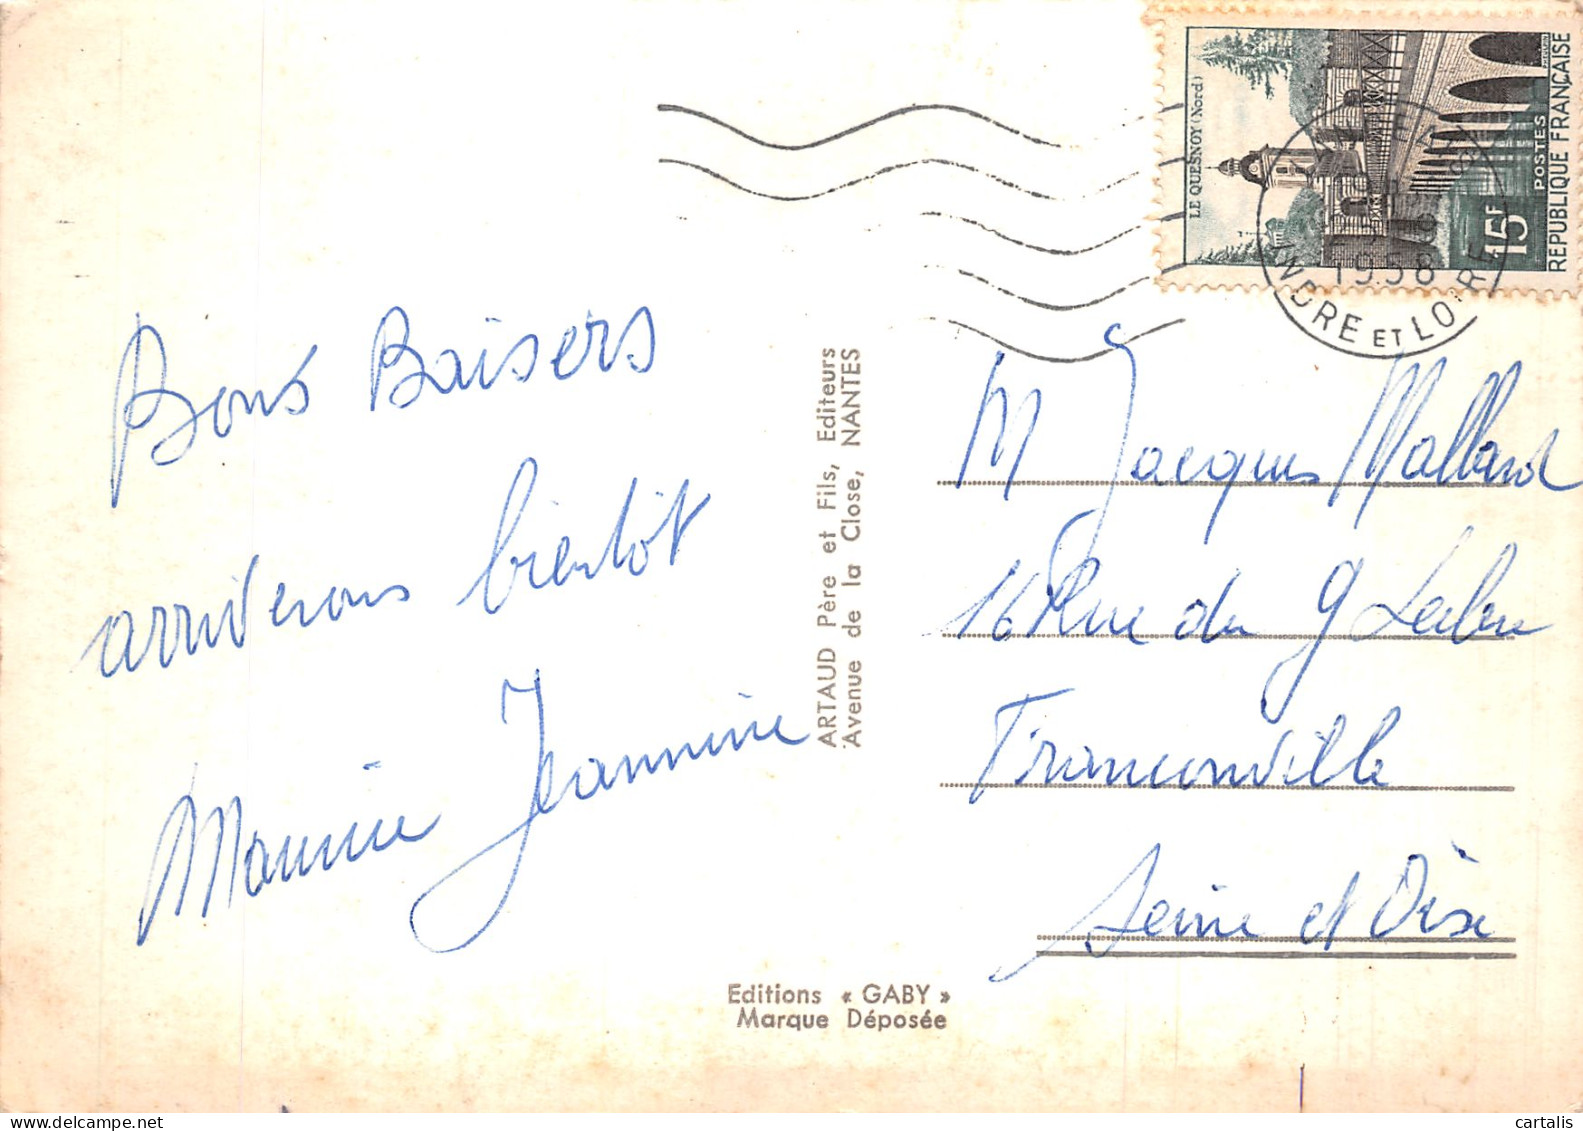 Bons Baisers
arriverons bientôt
Maurice Jeannine
ARTAUD Père et Fils, Editeurs
Avenue de la Close, NANTES
Editions « GABY »
Marque Déposée
LE QUESNOY (Nord)
15F
POSTES
REPUBLIQUE FRANÇAISE
1958
INDRE ET LOIRE
M Jacques Mallard
16 Rue du G Leclerc
Franconville
Seine et Oise
cartalis